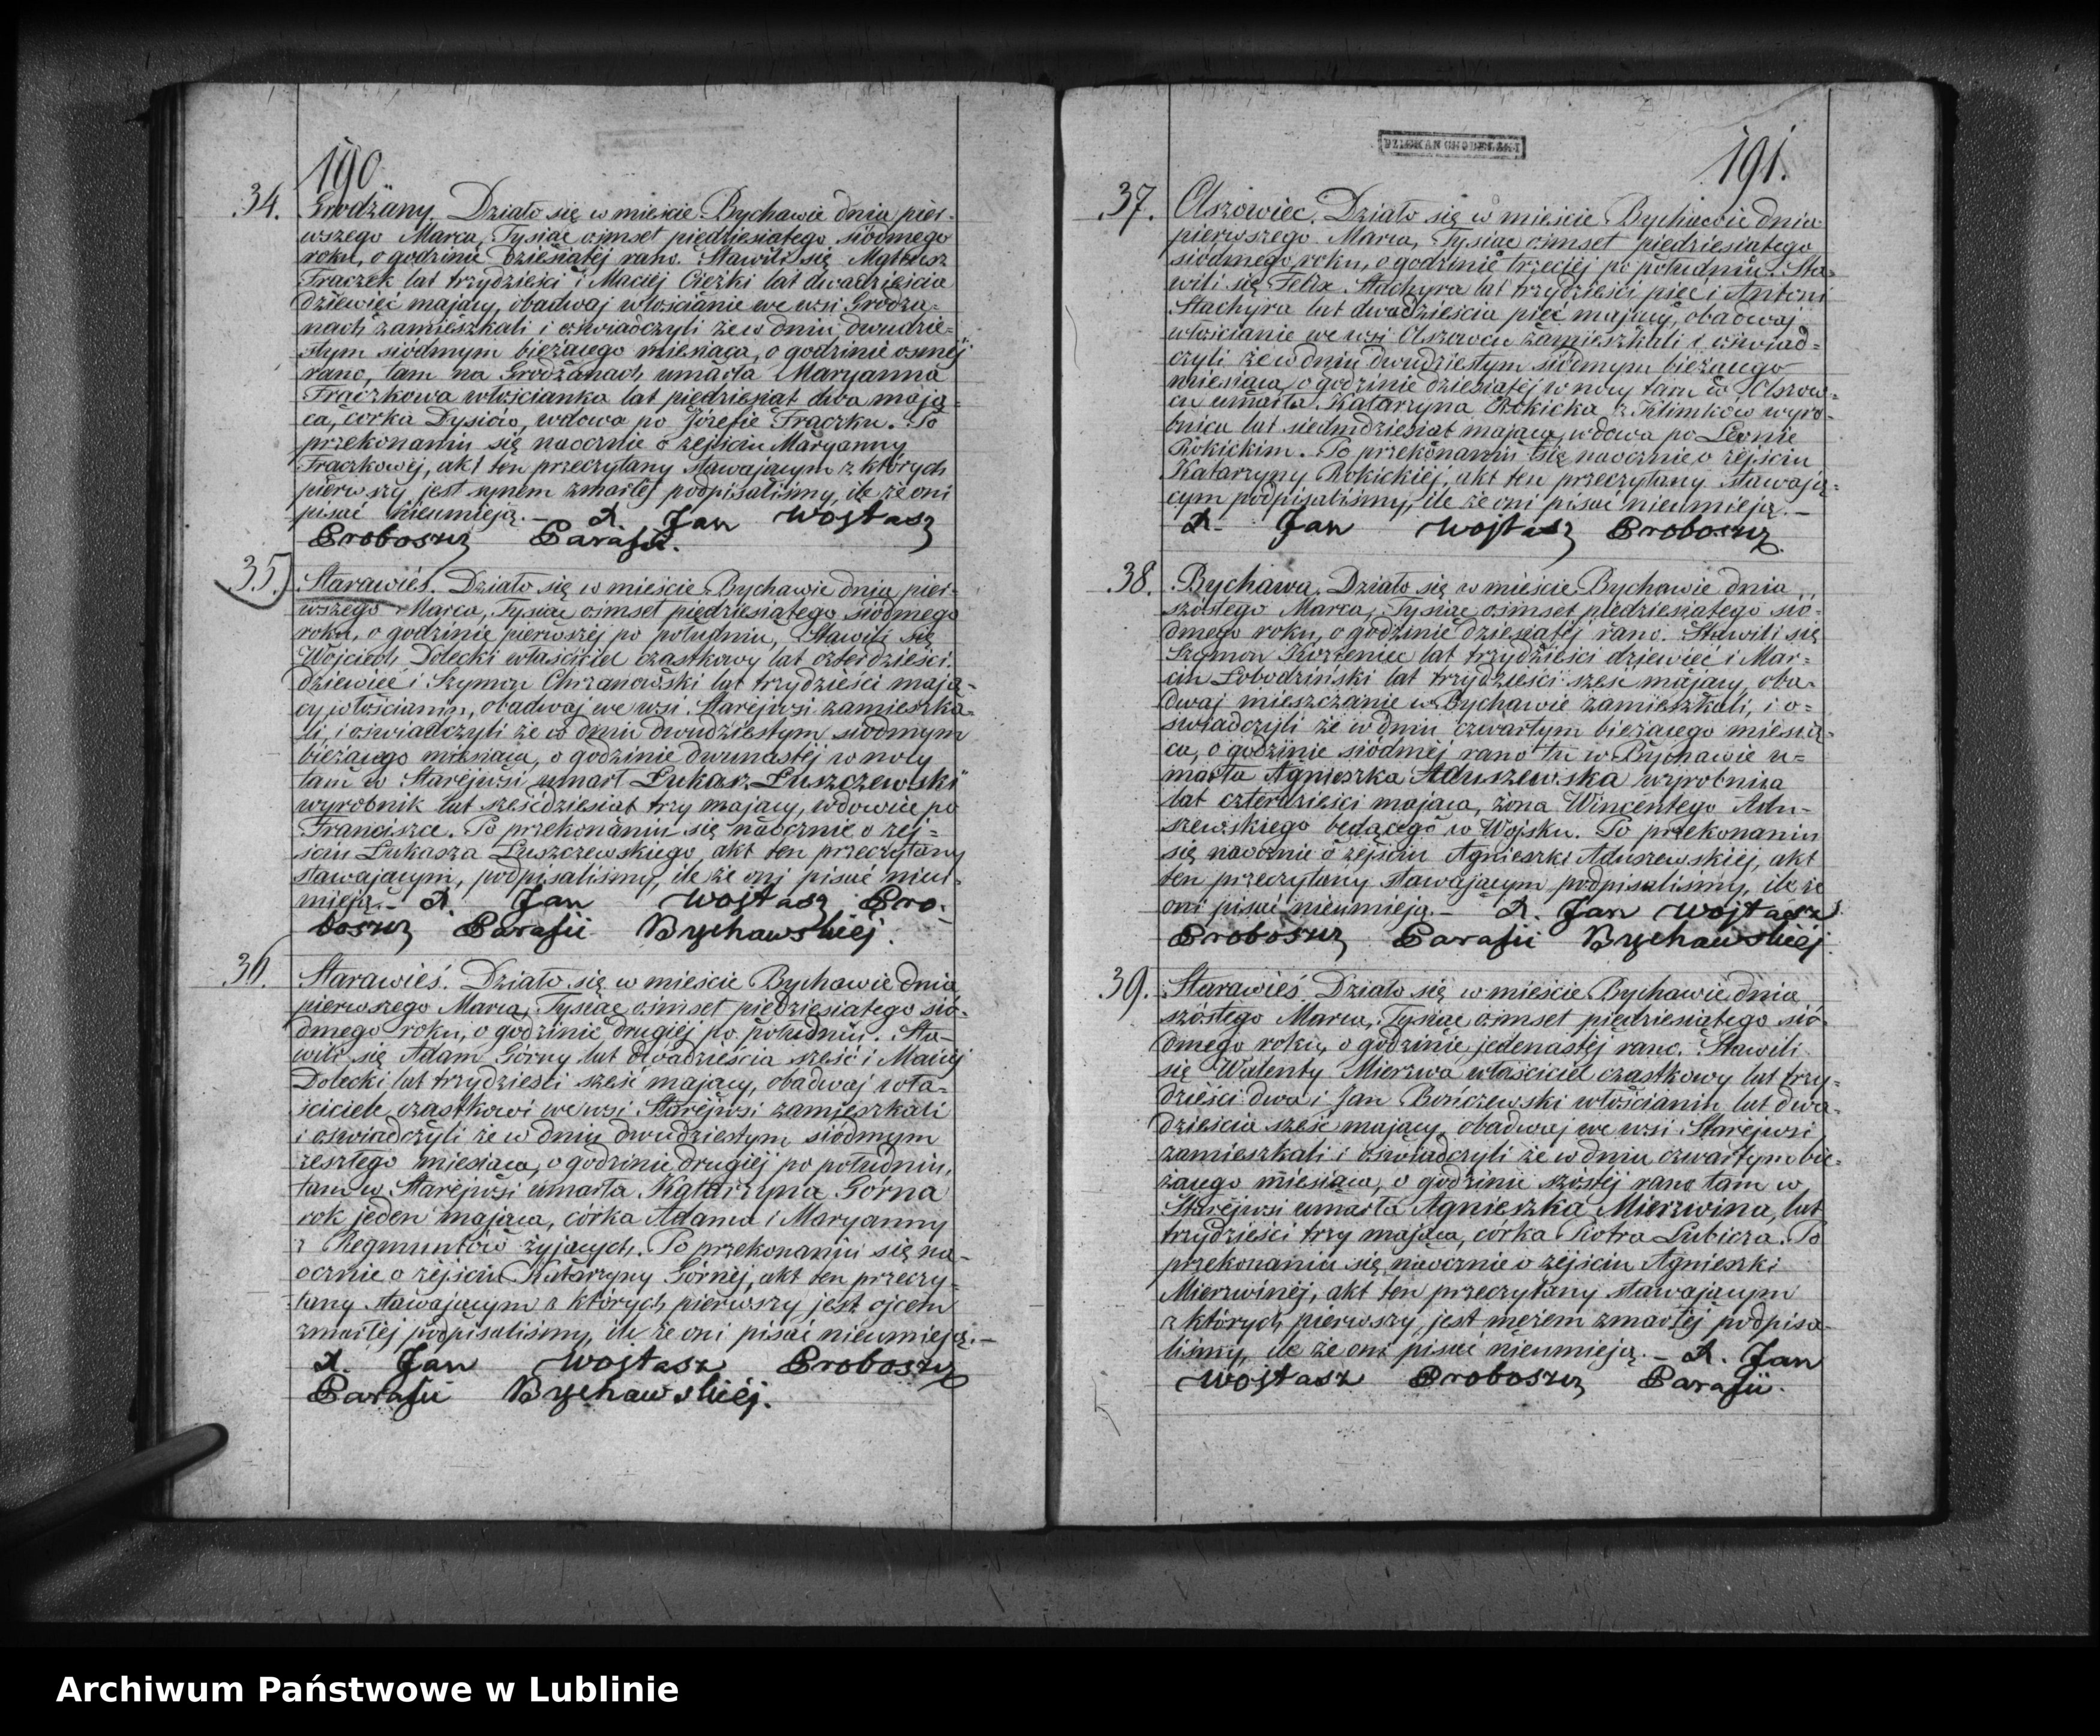 190
34. Grodzany. Działo się w mieście Bychawie dnia pier-
wszego Marca, Tysiąc ośmset piędziesiątego siódmego
roku, o godzinie dziesiątéj rano. Stawili się Mateusz
Frączek lat trzydzieści i Maciéj Ciężki lat dwadzieścia
dziewięć mający, obadwaj włościanie we wsi Grodza-
nach zamieszkali i oświadczyli że w dniu dwudzie-
stym siódmym bieżącego miesiąca, o godzinie ósméj
rano, tam na Grodzanach umarła Maryanna
Frączkowa włościanka lat piędziesiąt dwa mają-
ca, córka Dysiów, wdowa po Józefie Frączku. Po
przekonaniu się naocznie o zejściu Maryanny
Frączkowéj, akt ten przeczytany stawającym z których
pierwszy jest synem zmarłéj podpisaliśmy, ile że oni
pisać nieumieją. – X. Jan Wojtasz
Proboszcz Parafii.
35. Starawieś. Działo się w mieście Bychawie dnia pier-
wszego Marca, Tysiąc ośmset piędziesiątego siódmego
roku, o godzinie pierwszéj po południu, Stawili się
Wojciech Dolecki właściciel cząstkowy lat czterdzieści
dziewięć i Szymon Chrzanowski lat trzydzieści mają-
cy, włościanin, obadwaj we wsi Staréjwsi zamieszka-
li, i oświadczyli że w dniu dwudziestym siódmym
bieżącego miesiąca, o godzinie dwunastéj w nocy
tam w Staréjwsi umarł Łukasz Łuszczewski
wyrobnik lat sześćdziesiąt trzy mający, wdowiec po
Franciszce. Po przekonaniu się naocznie o zej-
ściu Łukasza Łuszczewskiego, akt ten przeczytany
stawającym, podpisaliśmy, ile że oni pisać nieu-
mieją. – X. Jan Wojtasz Pro-
boszcz Parafii Bychawskiéj.
36. Starawieś. Działo się w mieście Bychawie dnia
pierwszego Marca, Tysiąc ośmset piędziesiątego sió-
dmego roku, o godzinie drugiéj po południu. Sta-
wili się Adam Górny lat dwadzieścia sześć i Maciéj
Dolecki lat trzydzieści sześć mający, obadwaj wła-
ściciele cząstkowi we wsi Staréjwsi zamieszkali
i oświadczyli że w dniu dwudziestym siódmym
zeszłego miesiąca, o godzinie drugiéj po południu,
tam w Staréjwsi umarła Katarzyna Górna
rok jeden mająca, córka Adama i Maryanny
z Regmuntów żyjących. Po przekonaniu się na-
ocznie o zejściu Katarzyny Górnéj, akt ten przeczy-
tany stawającym z których pierwszy jest ojcem
zmarłéj podpisaliśmy, ile że oni pisać nieumieją. –
X. Jan Wojtasz Proboszcz
Parafii Bychawskiéj.
DZIEKAN CHODELSKI
191.
37. Olszowiec. Działo się w mieście Bychawie dnia
pierwszego Marca, Tysiąc ośmset piędziesiątego
siódmego roku, o godzinie trzeciéj po południu. Sta-
wili się Felix Stachyra lat trzydzieści pięć i Antoni
Stachyra lat dwadzieścia pięć mający, obadwaj
włościanie we wsi Olszowcu zamieszkali i oświad-
czyli że w dniu dwudziestym siódmym bieżącego
miesiąca, o godzinie dziesiątéj w nocy tam w Olszow-
cu umarła Katarzyna Rokicka z Klimków wyro-
bnica lat siedmdziesiąt mająca, wdowa po Leonie
Rokickim. Po przekonaniu się naocznie o zejściu
Katarzyny Rokickiéj, akt ten przeczytany stawają-
cym podpisaliśmy, ile że oni pisać nieumieją. –
X. Jan Wojtasz Proboszcz.
38. Bychawa. Działo się w mieście Bychawie dnia
szóstego Marca, Tysiąc ośmset piędziesiątego sió-
dmego roku, o godzinie dziesiątéj rano. Stawili się
Szymon Korzeniec lat trzydzieści dziewięć i Mar-
cin Łobodziński lat trzydzieści sześć mający, oba-
dwaj mieszczanie w Bychawie zamieszkali, i o-
świadczyli że w dniu czwartym bieżącego miesią-
ca, o godzinie siódméj rano tu w Bychawie u-
marła Agnieszka Aduszewska wyrobnica
lat czterdzieści mająca, żona Wincentego Adu-
szewskiego będącego w Wojsku. Po przekonaniu
się naocznie o zejściu Agnieszki Aduszewskiéj, akt
ten przeczytany stawającym podpisaliśmy, ile że
oni pisać nieumieją. – X. Jan Wojtasz
Proboszcz Parafii Bychawskiéj.
39. Starawieś. Działo się w mieście Bychawie dnia
szóstego Marca, Tysiąc ośmset piędziesiątego sió-
dmego roku, o godzinie jedenastéj rano. Stawili
się Walenty Mierzwa właściciel cząstkowy lat trzy-
dzieści dwa i Jan Bończewski włościanin lat dwa-
dzieścia sześć mający, obadwaj we wsi Staréjwsi
zamieszkali i oświadczyli że w dniu czwartym bie-
żącego miesiąca, o godzinie szóstéj rano tam w
Staréjwsi umarła Agnieszka Mierzwina, lat
trzydzieści trzy mająca, córka Piotra Lubicza. Po
przekonaniu się naocznie o zejściu Agnieszki
Mierzwinéj, akt ten przeczytany stawającym
z których pierwszy, jest mężem zmarłéj podpisa-
liśmy, ile że oni pisać nieumieją. – X. Jan
Wojtasz Proboszcz Parafii.
Archiwum Państwowe w Lublinie